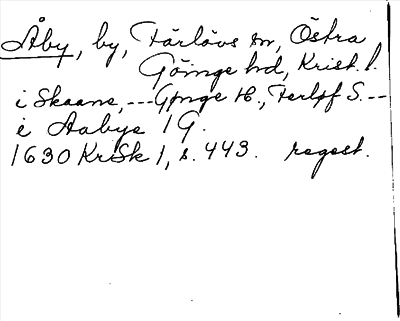 Åby, by, Färlövs sn, Östra
Göinge hd, Krist. l.
i Skaane, --- Gønge H., Ferløf S. ---
i Aabye 1 G.
1630 KrSk 1, s. 443. regest.